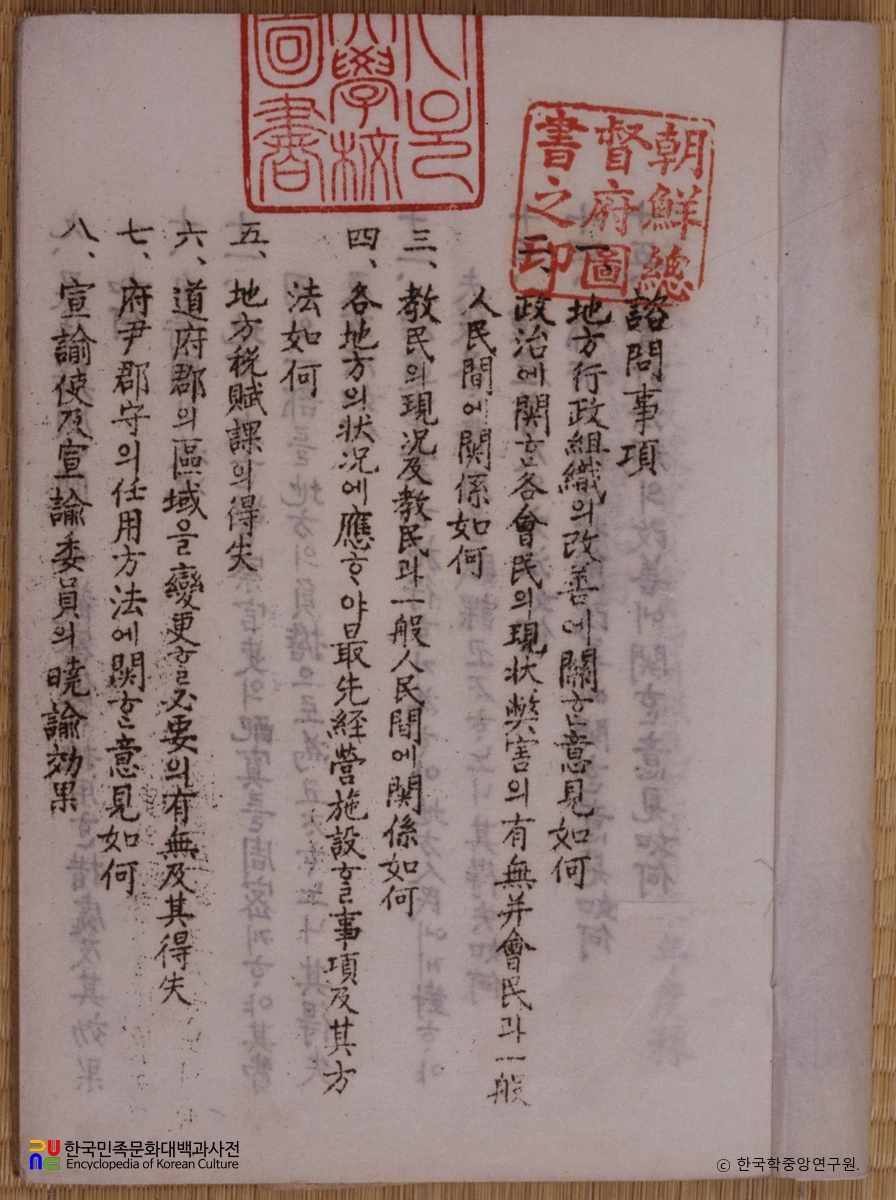 朝鮮總
督府圖
書之印
學校
圖書
諮問事項
一、地方行政組織의改善에關ᄒᆞᆫ意見如何
二、政治에関ᄒᆞᆫ各會民의現状獘害의有無并會民과一般
人民間에関係如何
三、教民의現况及教民과一般人民間에関係如何
四、各地方의状况에應ᄒᆞ야最先経營施設ᄒᆞᆯ事項及其方
法如何
五、地方税賦課의得失
六、道府郡의區域을變更ᄒᆞᆯ必要의有無及其得失
七、府尹郡守의任用方法에関ᄒᆞᆫ意見如何
八、宣諭使及宣諭委員의曉諭効果
한국민족문화대백과사전
Encyclopedia of Korean Culture
ⓒ 한국학중앙연구원.